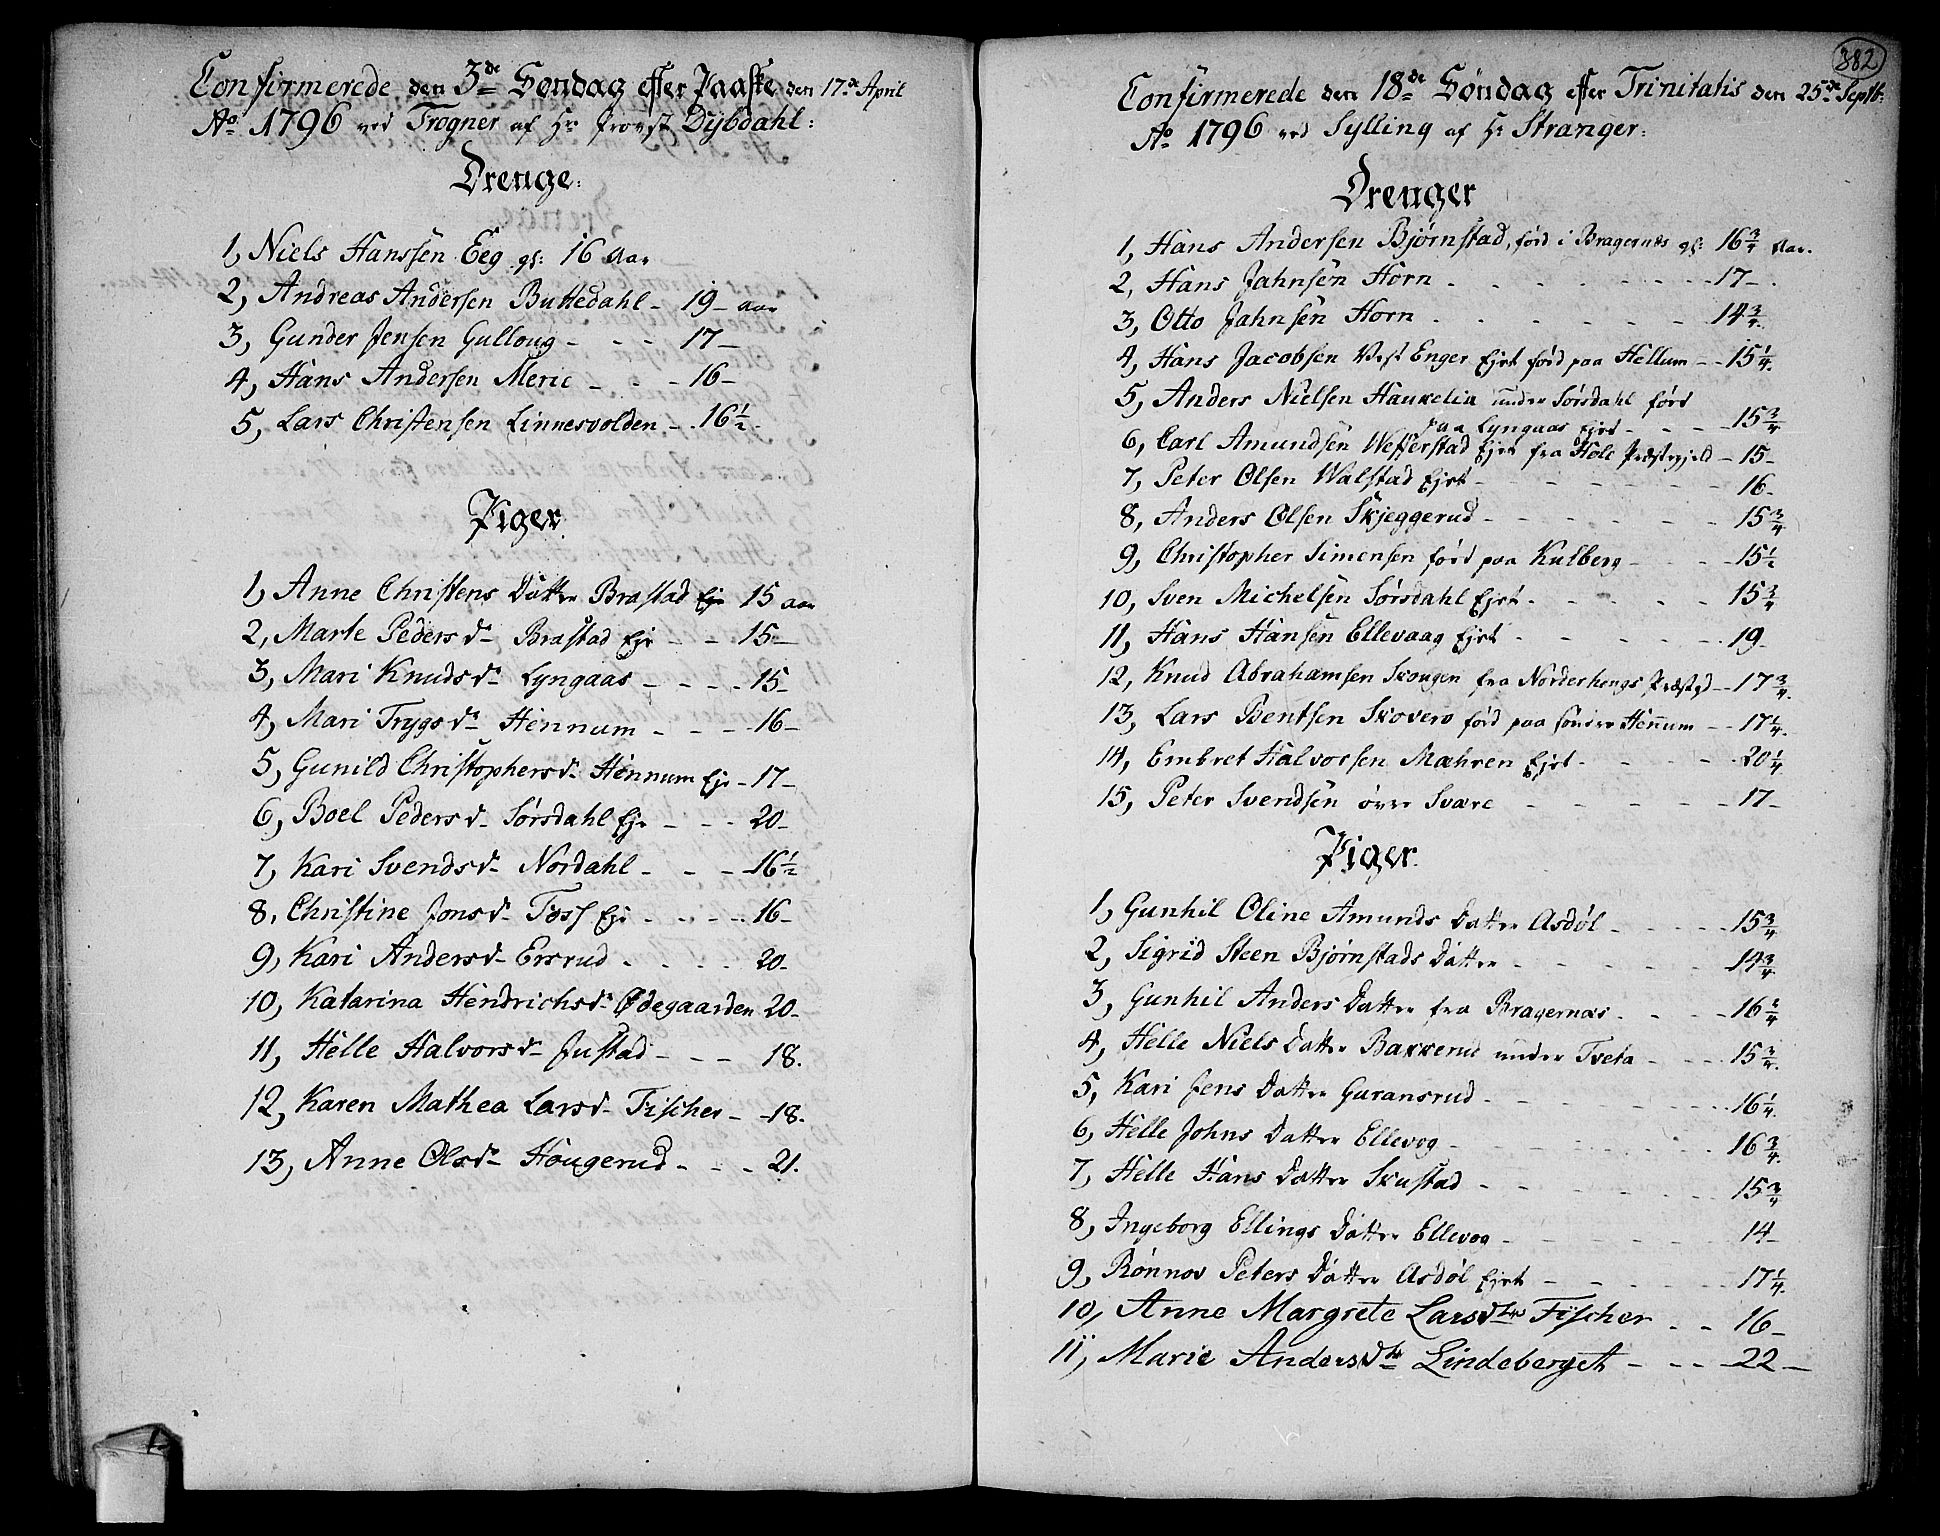 Confirmerede den 3de Søndag efter Paaske den 17de April
Ao 1796 ved Trogner af Hr Provst Dybdahl:
Drenge:
1, Niels Hanssen Eeg gl: 16 Aar
2, Andreas Andersen Buttedahl - 19 - aar
3, Gunder Jensen Gulloug - - - 17 -
4, Hans Andersen Meric - - - 16 -
5, Lars Christensen Linnesvolden - 16 1/2
Piger
1, Anne Christens Datter Brastad Eje 15 aar
2, Marte Peders d. Brastad Eje - - 15 -
3, Mari Knuds d. Lyngaas - - - - 15 -
4, Mari Trygs d. Hennum - - - - 16 -
5, Gunild Christophers d. Hennum Eje - 17 -
6, Boel Peders d. Sørsdahl Eje - - - 20 -
7, Kari Svends d. Nordahl - - - 16 1/2
8, Christine Jons d. Foss Eje - - - - 16 -
9, Kari Anders d. Ersrud - - - - 20 -
10, Katarina Hendrichs d. Ødegaarden 20 -
11, Helle Halvors d. Justad - - - 18.
12, Karen Mathea Lars d. Fischer - - 18.
13, Anne Ols d. Hougerud - - - 21.
382
Confirmerede den 18de Søndag efter Trinitatis den 25de Septb:
Ao 1796 ved Sylling af Hr Stranger:
Drenger
1, Hans Andersen Bjørnstad, førd i Bragernæs gl: 16 3/4 Aar.
2, Hans Jahnsen Horn - - - - - 17 -
3, Otto Jahnsen Horn - - - - - 14 3/4.
4, Hans Jacobsen Vest Enger Ejet førd paa Hellum - - 15 1/4.
5, Anders Nielsen Haukelia under Sørsdahl førd
paa Lyngaas Ejet - - - - 15 3/4
6, Carl Amundsen Wefferstad Ejet fra Hole Præstegjeld - 15 -
7, Peter Olsen Walstad Ejet - - - - - 16 -
8, Anders Olsen Skjeggerud - - - - - 15 3/4
9, Christopher Simensen førd paa Kulberg - - - - 15 1/2
10, Sven Michelsen Sørsdahl Ejet - - - - 15 3/4
11, Hans Hansen Ellevaag Ejet - - - - 19
12, Knud Abrahamsen Skougen fra Norderhougs Præstgd - - 17 3/4.
13, Lars Bentsen Skovero førd paa søndre Hennum - - 17 1/4.
14, Embret Halvorsen Mæhren Ejet - - - - 20 1/4
15, Peter Svendsen øvre Svære - - - - 17 -
Piger
1, Gunhil Oline Amunds Datter Asdøl - - - - - 15 3/4
2, Sigrid Steen Bjørnstads Datter - - - - - 14 3/4
3, Gunhil Anders Datter fra Bragernæs - - - - 16 1/4
4, Helle Niels Datter Bakkerud under Tveta - - - - 15 3/4.
5, Kari Jens Datter Guransrud - - - - - 16 1/4.
6, Helle Johns Datter Ellevog - - - - - 16 3/4.
7, Helle Hans Datter Skustad - - - - - 15 3/4
8, Ingeborg Ellings Datter Ellevog - - - - - 14 -
9, Rønnov Peters Datter Asdøl Ejet - - - - 17 1/4.
10, Anne Margrete Lars dtr Fischer - - 16 -
11, Marie Anders dtr Lindeberget - - - 22 -